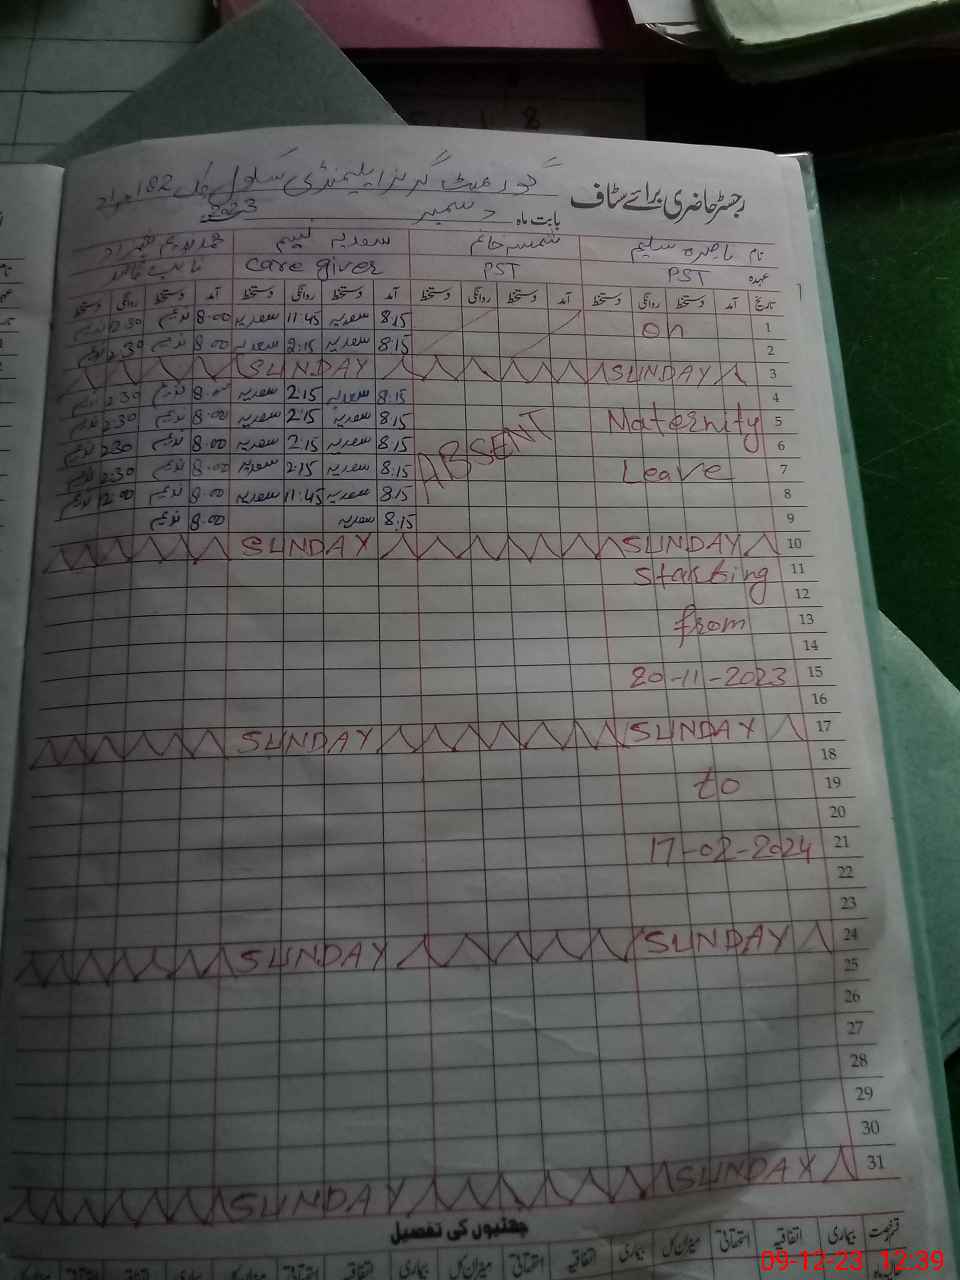 گورنمنٹ گرلز ایلیمنٹری سکول چک 182 مراد
رجسٹر حاضری برائے سٹاف
بابت ماہ دسمبر 2023
نام ناصرہ سلیم شمسہ خانم سعدیہ نسیم
عہدہ PST PST Care giver نائب قاصد
تاریخ آمد دستخط روانگی دستخط آمد دستخط روانگی دستخط آمد دستخط روانگی دستخط آمد دستخط روانگی دستخط
1 on 8:15 سعدیہ 11:45 سعدیہ 8:00 ندیم 12:30 ندیم
2 8:15 سعدیہ 2:15 سعدیہ 8:00 ندیم 2:30 ندیم
3 SUNDAY SUNDAY
4 8:15 سعدیہ 2:15 سعدیہ 8:00 ندیم 2:30 ندیم
5 Maternity ABSENT 8:15 سعدیہ 2:15 سعدیہ 8:00 ندیم 2:30 ندیم
6 8:15 سعدیہ 2:15 سعدیہ 8:00 ندیم 2:30 ندیم
7 Leave 8:15 سعدیہ 2:15 سعدیہ 8:00 ندیم 2:30 ندیم
8 8:15 سعدیہ 11:45 سعدیہ 8:00 ندیم 12:00 ندیم
9 8:15 سعدیہ 8:00 ندیم
10 SUNDAY SUNDAY
11 Starting
12
13 from
14
15 20-11-2023
16
17 SUNDAY SUNDAY
18
19 to
20
21 17-02-2024
22
23
24 SUNDAY SUNDAY
25
26
27
28
29
30
31 SUNDAY SUNDAY
چھٹیوں کی تفصیل
قسم رخصت بیماری اتفاقیہ استحقاقی میزان کل بیماری اتفاقیہ استحقاقی میزان کل بیماری اتفاقیہ استحقاقی میزان کل
09-12-23 12:39